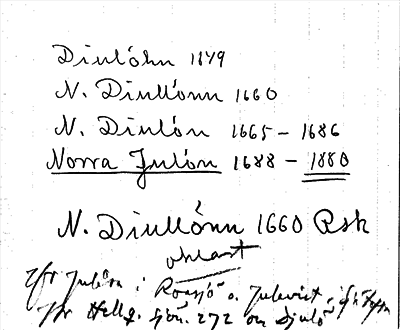 Diulöhn 1849
N. Diullönn 1660
N. Diulön 1665 - 1686
Norra Julön 1688 - 1880
N. Diullönn 1660 Rsk
oklart
Jfr Julön i Rossjö o. Julevist
Jfr Hellq. Sjön. 272 om Djulö